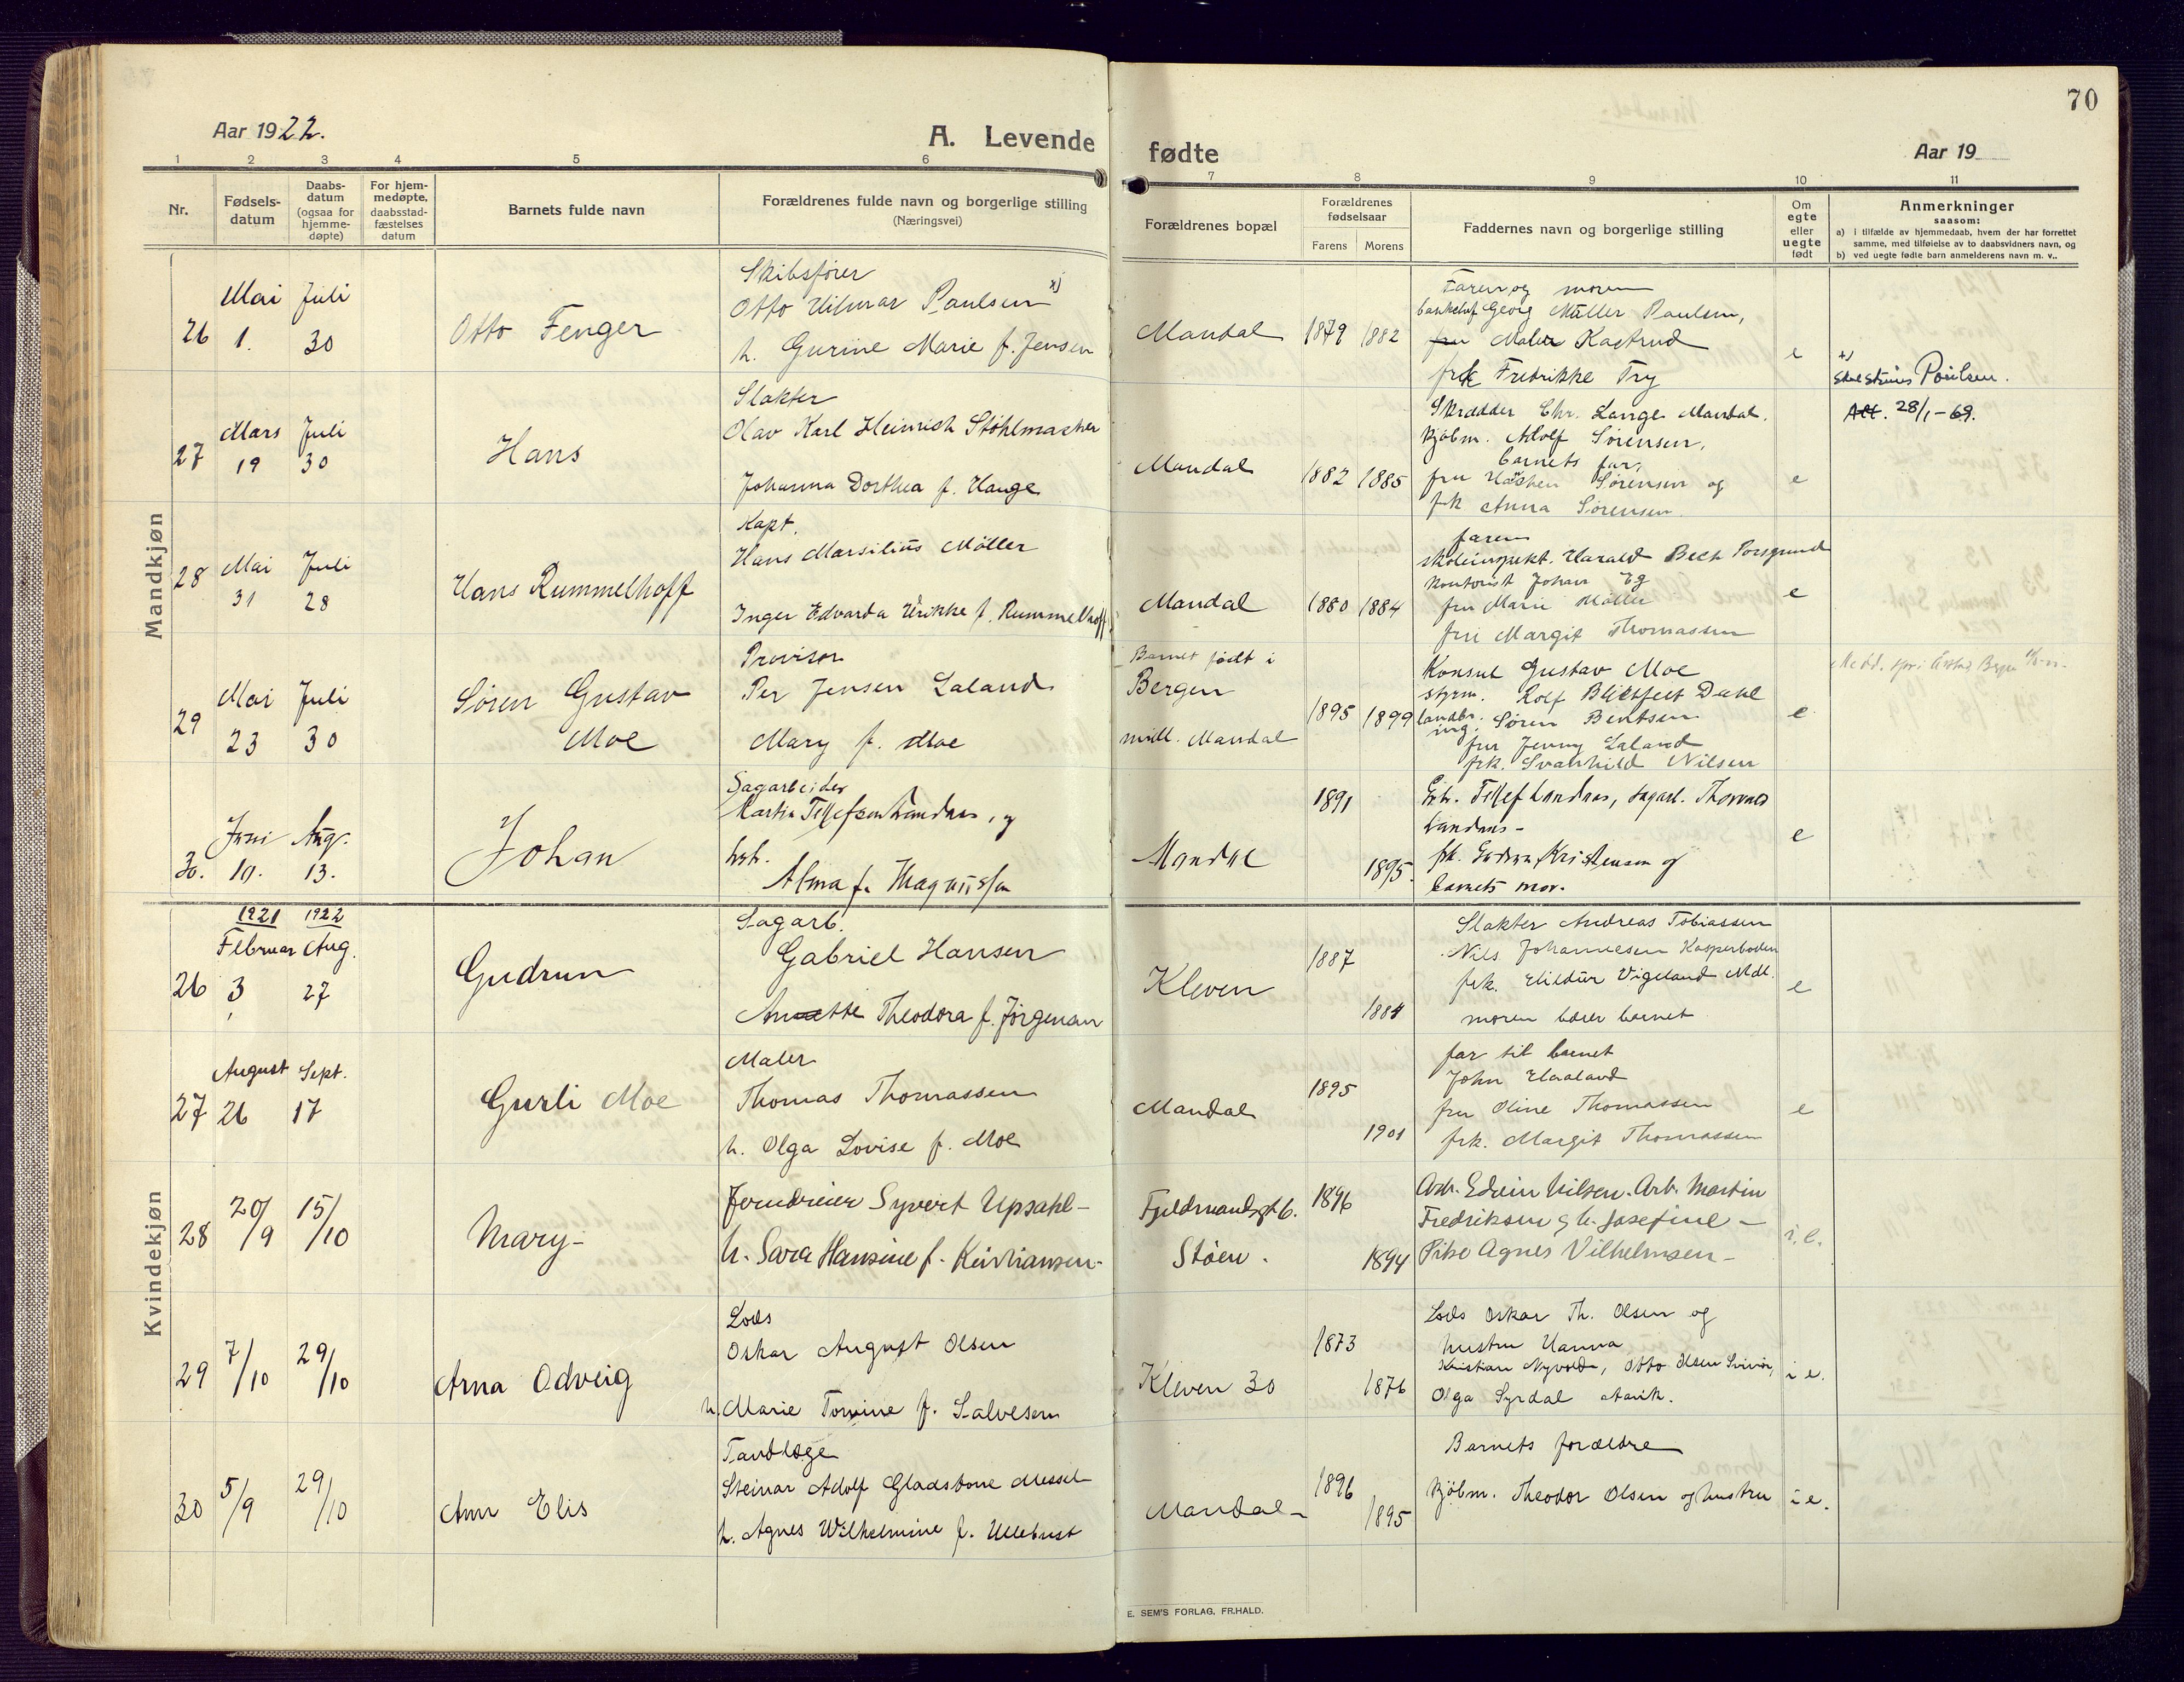 70
Aar 1922.
A. Levende fødte
Aar 19
1 2 3 4 5 6 7 8 9 10 11
Nr.
Fødsels-
datum
Daabs-
datum
(ogsaa for
hjemme-
døpte)
For hjem-
medøpte,
daabsstad-
fæstelses
datum
Barnets fulde navn
Forældrenes fulde navn og borgerlige stilling
(Næringsvei)
Forældrenes bopæl
Forældrenes
fødselsaar
Farens Morens
Faddernes navn og borgerlige stilling
Om
egte
eller
uegte
født
Anmerkninger
saasom:
a) i tilfælde av hjemmedaab, hvem der har forrettet
samme, med tilføielse av to daabsvidners navn, og
b) ved uegte fødte barn anmelderens navn m. v..
Mandkjøn
26
Mai Juli
1. 30
Otto Fenger
Skibsfører
Otto Hilmar Paulsen x)
h. Gurine Marie f. Jensen
Mandal
1879 1882
Faren og moren
bankchef Georg Müller Paulsen,
fru Maler Kastrud
frk Fredrikke Try
e
x)
Poulsen.
28/1-69.
27
Mars Juli
19 30
Hans
Slakter
Olav Karl Heinrich Stöhlmacher
Johanna Dorthea f. Hauge
Mandal
1882 1885
Skrædder Chr. Lange Mandal.
Kjøbm. Adolf Sørensen,
barnets far,
fru Sørensen og
frk Anna Sørensen.
e
28
Mai Juli
31 28
Hans Rummelhoff
Kapt.
Hans Marsilius Møller
Inger Edvarda Ulrikke f. Rummelhoff
Mandal
1880 1884
faren
skoleinspekt. Harald Bech Porsgrund
Kontorist Johan Eg
fru Marie Møller
fru Margit Thomassen
e
29
Mai Juli
23 30
Søren Gustav
Moe
Provisor
Per Jensen Laland
Mary f. Moe
Barnet født i
Bergen
midl. Mandal
1895 1899
Konsul Gustav Moe
styrm. Rolf Blichfeldt Dahl
landbr.
ing. Søren Bentsen
fru Jenny Laland
frk. Svanhild Nilsen
e
30.
Juni Aug.
10. 13.
Johan
Sagarbeider
Martin Tellefsen Landaas, og
hst.
Alma f. Magnussen
Mandal
1891
1895.
Tellef Landaas, sagarb. Thomas
Landaas -
frk. Gudrun Kristensen og
barnets mor.
e
Kvindekjøn
26
1921 1922
Februar Aug.
3 27
Gudrun
Sagarb.
Gabriel Hansen
Annette Theodora f. Jørgensen
Kleven
1887
1884
Slakter Andreas Tobiassen
Nils Johannesen Kasperboden
frk. Vigeland Mdl.
moren bærer barnet
e
27
August Sept.
26 17
Gurli Moe
Maler
Thomas Thomassen
h. Olga Lovise f. Moe
Mandal
1895
1901
far til barnet
John Haaland
fru Oline Thomassen
frk. Margit Thomassen
e
28
20/9 15/10
Mary -
Jerndreier Syvert Upsahl -
h. Sara Hansine f. Kristiansen -
Fjeldmandsgt 6.
Støen.
1896
1894
Arb. Edvin Nilsen. Arb. Martin
Fredriksen og h. Josefine -
Pike Agnes Vilhelmsen -
i. e.
29
7/10 29/10
Arna Odveig
Lods
Oskar August Olsen
h. Marie Tomine f. Salvesen
Kleven 30
1873
1876
Lods Oskar Th. Olsen og
hustru Hanna
Kristian Nyvold, Otto Olsen
Olga Syrdal
i e.
30
5/9 29/10
Ann Elis
Tandlæge
Steinar Adolf Gladstone Messel
h. Agnes Wilhelmine f. Ullebust
Mandal -
1896
1895
Barnets forældre
Kjøbm. Theodor Olsen og hustru
i e.
E. SEM'S FORLAG, FR.HALD.